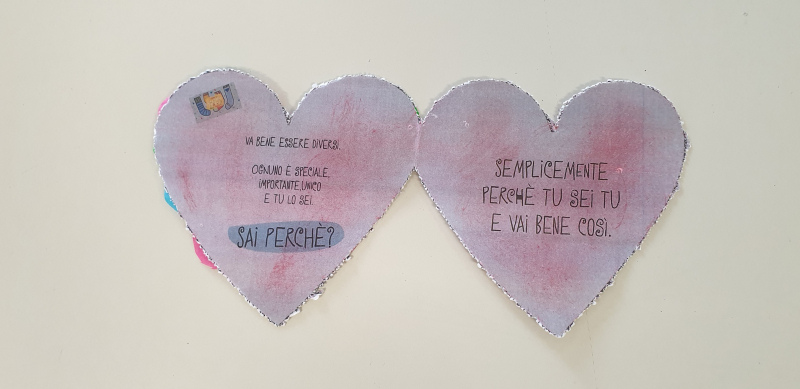 VA BENE ESSERE DIVERSI.
OGNUNO È SPECIALE,
IMPORTANTE, UNICO
E TU LO SEI.
SAI PERCHÈ?
SEMPLICEMENTE
PERCHÈ TU SEI TU
E VAI BENE COSÌ.